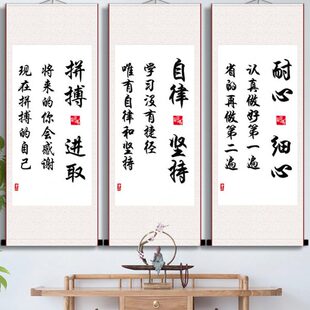 耐心 细心
认真做好第一遍
省的再做第二遍
自律 坚持
学习没有捷径
唯有自律和坚持
拼搏 进取
将来的你会感谢
现在拼搏的自己